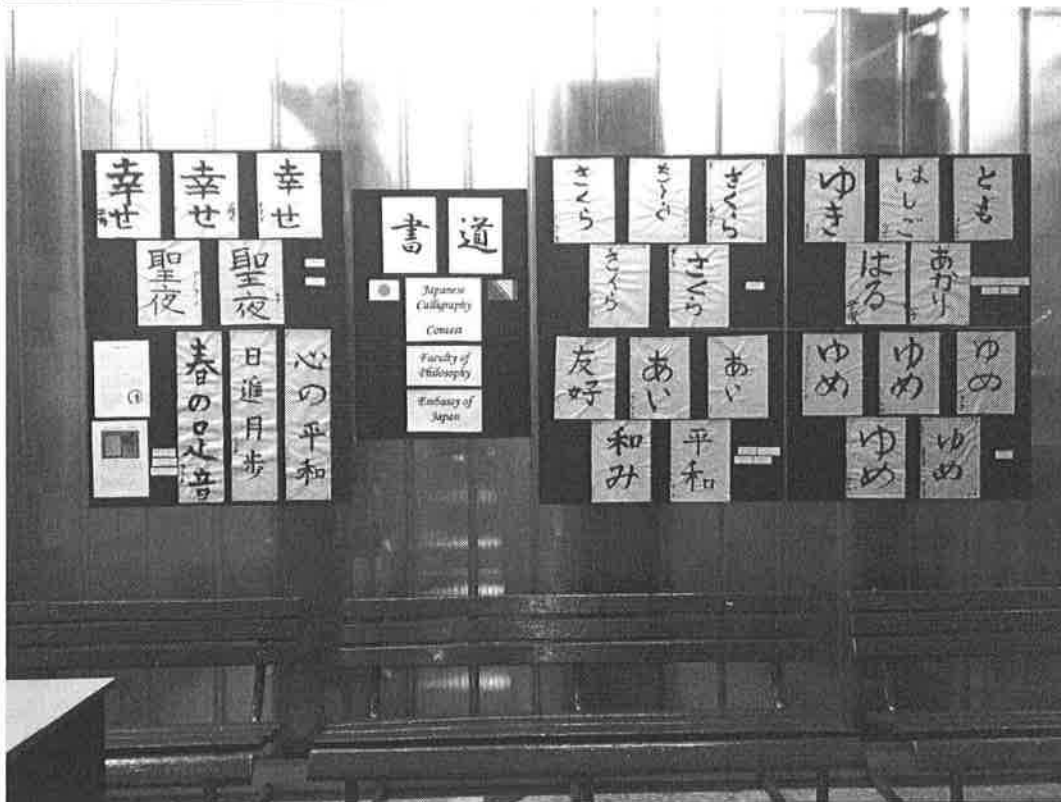 幸せ
幸せ
幸せ
聖夜
聖夜
春の足音
日進月歩
心の平和
①
書道
Japanese
Calligraphy
Contest
Faculty of
Philosophy
Embassy of
Japan
さくら
さくら
さくら
さくら
さくら
友好
あい
あい
和み
平和
ゆき
はしご
とも
はる
あかり
ゆめ
ゆめ
ゆめ
ゆめ
ゆめ